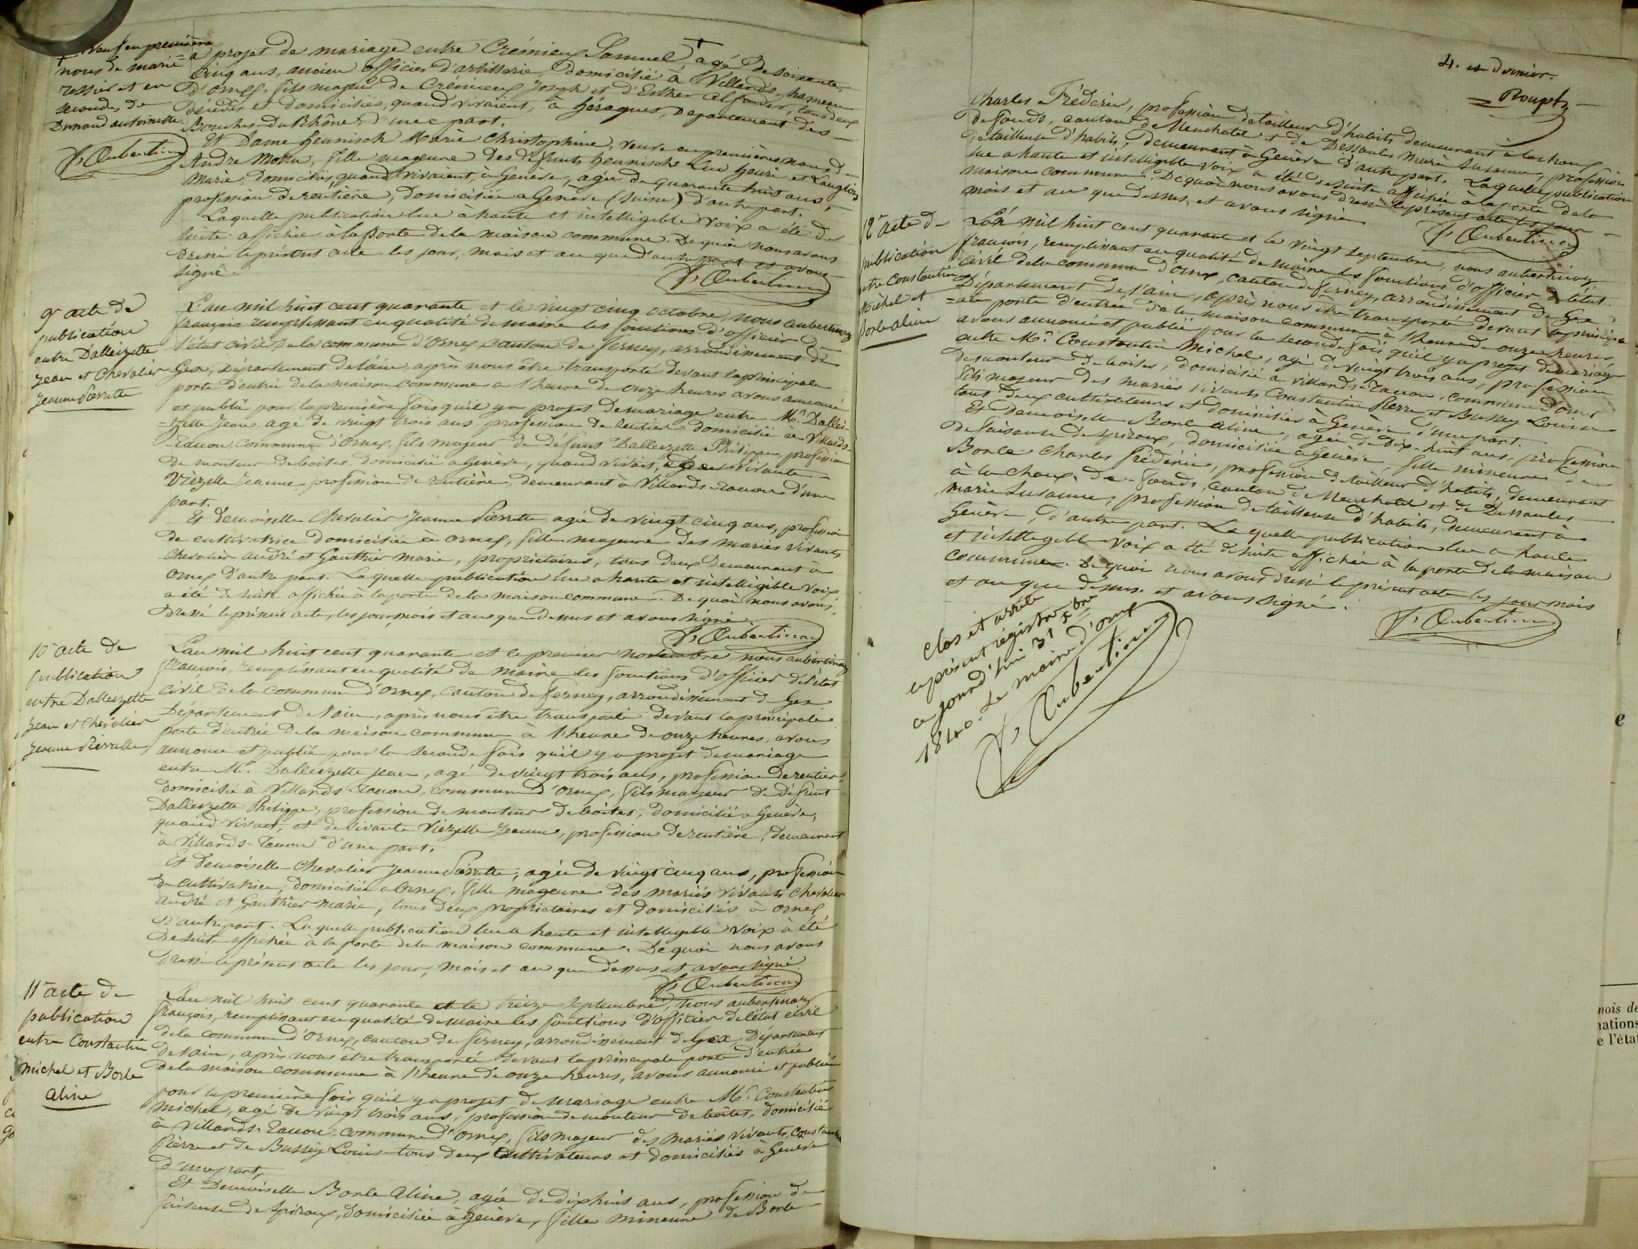 + Veuf en première
nous de marie
rossier et en
seconde, de
Durand antoinette
F. Aubertin
a projet de mariage entre Crémieux Samuel + agé de soixante
cinq ans, ancien officier d'artillerie, domicilié à Villards, hameau
d'Ornex, fils majeur de Crémieux Joseph et d'Esther tous deux
décédés et domiciliés, quand vivaient, à Département des
Bouches du Rhône, d'une part.
Et Dame heunisch Marie Christophine, veuve en premières nous de
André Mottu, fille mageure des défunts heunisch Luc henri et Langlois
Marie, domiciliés quand vivaient, à Genève, agée de quarante huit ans,
profession de rentière, domiciliée à Genève (Suisse) d'autre part.
Laquelle publication lue a haute et intelligible voix a été de
suite affichée à la porte de la maison commune. De quoi nous avons
dressé le présent acte les jour, mois et an que d'autre part et avons
signé.
F. Aubertin
9e acte de
publication
entre Dalleizette
Jean et Chevalier
Jeanne Pierrette
L'an mil huit cent quarante et le vingt cinq octobre, nous aubertin
françois remplissant en qualité de maire les fonctions d'officier de
l'état civil de la commune d'Ornex, canton de ferney, arrondissement de
Gex, département de l'ain, après nous être transporté devant la principale
porte d'entrée de la maison commune à l'heure de onze heures avons annoncé
et publié pour la première fois qu'il y a projet de mariage entre Mr. Dallei-
-zette Jean, agé de vingt trois ans, profession de rentier, domicilié à Villards-
-Tacon commune d'Ornex, fils majeur de défunt Dalleizette Philippe, profession
de monteur de boîtes domicilié à Genève, quand vivait, et de vivante
Viezelle Jeanne profession de rentière, demeurant à Villards-Tacon d'une
part.
Et demoiselle Chevalier Jeanne Pierrette agée de vingt cinq ans, profession
de cultivatrice domiciliée à Ornex, fille majeure des mariés vivants
Chevalier andré et Gauthier marie, propriétaires, tous deux demeurant à
Ornex d'autre part. La quelle publication lue a haute et intelligible voix
a été de suite affichée à la porte de la maison commune. De quoi nous avons
dressé le présent acte, les jour mois et an que dessus et avons signé.
F. Aubertin
10e acte de
publication
entre Dalleizette
Jean et Chevalier
Jeanne Pierrette
L'an mil huit cent quarante et le premier novembre, nous aubertin
françois, remplissant en qualité de maire les fonctions d'officier de l'état
civil de la commune d'Ornex, canton de ferney, arrondissement de Gex
Département de l'ain, après nous être transporté devant la principale
porte d'entrée de la maison commune à l'heure de onze heures, avons
annoncé et publié pour la seconde fois qu'il y a projet de mariage
entre Mr. Dalleizette Jean, agé de vingt trois ans, profession de rentier
domicilié à Villards-Tacon, commune d'Ornex, fils majeur de défunt
Dalleizette Philippe, profession de monteur de boîtes, domicilié à Genève,
quand vivait, et de vivante Viezelle Jeanne, profession de rentière, demeurant
à Villards-Tacon d'une part.
Et demoiselle Chevalier Jeanne Pierrette, agée de vingt cinq ans, profession
de cultivatrice, domiciliée à Ornex, fille mageure des mariés vivants Chevalier
andré et Gauthier marie, tous deux propriétaires et domiciliés à Ornex
d'autre part. La quelle publication lue a haute et intelligible voix a été
de suite affichée à la porte de la maison commune. De quoi nous avons
dressé le présent acte les jour, mois et an que dessus et avons signé
F. Aubertin
11e acte de
publication
entre Constantin
Michel et Borle
aline
L'an mil huit cent quarante et le treize septembre, nous aubertin
françois, remplissant en qualité de maire les fonctions d'officier de l'état civil
de la commune d'Ornex, canton de ferney, arrondissement de Gex, Département
de l'ain, après nous être transporté devant la principale porte d'entrée
de la maison commune à l'heure de onze heures, avons annoncé et publié
pour la première fois qu'il y a projet de mariage entre Mr. Constantin
Michel, agé de vingt trois ans, profession de monteur de boîtes, domicilié
à Villards-Tacon, commune d'Ornex, fils majeur des mariés vivants, Constantin
Pierre et de Bussey Louise tous deux cultivateurs et domiciliés à Genève
d'une part,
Et Demoiselle Borle Aline, agée de dix huit ans, profession de
faiseuse de spiraux, domiciliée à Genève, fille mineure de Borle
4. et dernier.
Rouptz
Charles Frédéric, profession de tailleur d'habits demeurant à la chaux
de fonds, canton de Neuchatel et de Dessaules Marie Susanne, profession
de tailleuse d'habits, demeurant à Genève d'autre part. Laquelle publication
lue a haute et intelligible voix a été de suite affichée à la porte de la
maison commune. De quoi nous avons dressé le présent acte les jour
mois et an que dessus, et avons signé
F. Aubertin
12e acte de
publication
entre Constantin
Michel et
Borle aline
L'an mil huit cent quarante et le vingt septembre, nous aubertin
françois, remplissant en qualité de maire les fonctions d'officier de l'état
civil de la commune d'Ornex, canton de ferney, arrondissement de Gex
Département de l'ain, après nous être transporté devant la principa-
-ale porte d'entrée de la maison commune à l'heure de onze heures,
avons annoncé et publié pour la seconde fois qu'il y a projet de mariage
entre Mr. Constantin Michel, agé de vingt trois ans, profession
de monteur de boîtes, domicilié à villards-Tacon, commune d'Ornex
fils majeur des mariés vivants Constantin Pierre et Bussey Louise
tous deux cultivateurs et domiciliés à Genève d'une part.
Et Demoiselle Borle Aline, agée de dix-huit ans, profession
de faiseuse de spiraux, domiciliée à Genève, fille mineure de
Borle Charles Frédéric, profession de tailleur d'habits, demeurant
à la chaux-de-fonds, canton de Neuchatel et de Dessaules
marie Susanne, profession de tailleuse d'habits, demeurant à
Genève, d'autre part. La quelle publication lue a haute
et intelligible voix a été de suite affichée à la porte de la maison
commune. De quoi nous avons dressé le présent acte les jour mois
et an que dessus et avons signé.
F. Aubertin
Clos et arrêté
le présent registre
ce jourd'hui 31 Xbre
1840. Le maire d'Ornex
F. Aubertin
e
nois de
nations
e l'éta